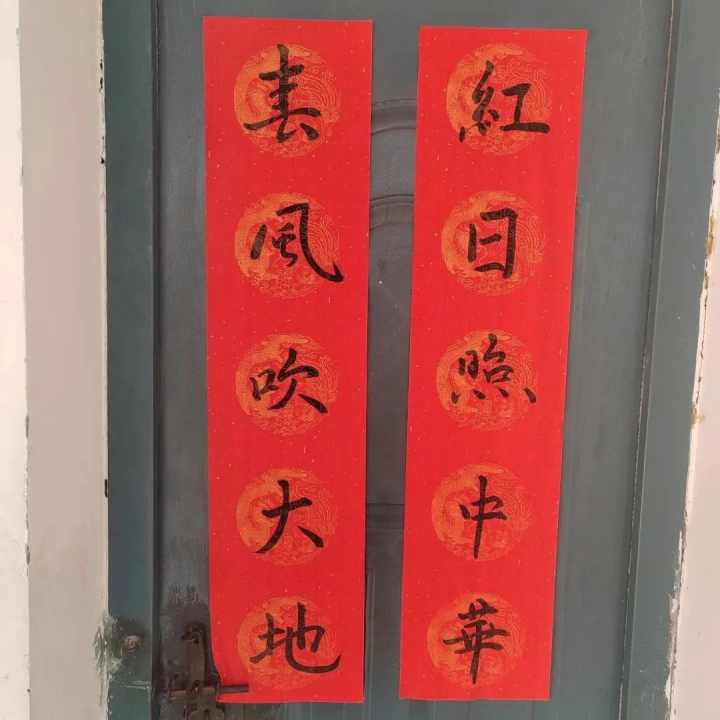 紅日照中華
春風吹大地